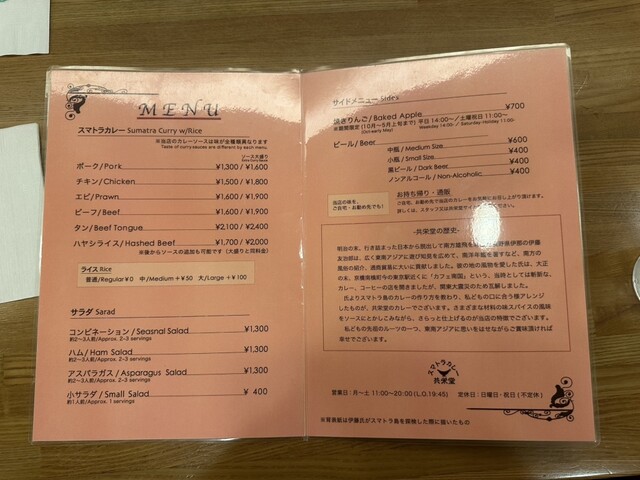 MENU
スマトラカレー Sumatra Curry w/Rice
※当店のカレーソースは味が全種類異なります
Taste of curry sauces are different by each menu
ソース大盛り
ポーク/Pork ¥1,300 / ¥1,600
チキン/Chicken ¥1,500 / ¥1,800
エビ/Prawn ¥1,600 / ¥1,900
ビーフ/Beef ¥1,600 / ¥1,900
タン/Beef Tongue ¥2,100 / ¥2,400
ハヤシライス/Hashed Beef ¥1,700 / ¥2,000
※後からソースの追加も可能です(大盛りと同料金)
ライス Rice
普通/Regular¥0 中/Medium +¥50 大/Large +¥100
サラダ Sarad
コンビネーション / Seasnal Salad ¥1,300
約2~3人前/Approx. 2-3 servings
ハム/ Ham Salad ¥1,300
約2~3人前/Approx. 2-3 servings
アスパラガス / Asparagus Salad ¥1,300
約2~3人前/Approx. 2-3 servings
小サラダ/ Small Salad ¥ 400
約1人前/Approx. 1 servings
サイドメニュー Sides
焼きりんご/ Baked Apple ¥700
※期間限定 (10月~5月上旬まで) 平日 14:00~ / 土曜祝日 11:00~
(Oct-early May) Weekday 14:00- / Saturday・Holiday 11:00-
ビール/ Beer
中瓶 / Medium Size ¥600
小瓶 / Small Size ¥400
黒ビール / Dark Beer ¥400
ノンアルコール / Non-Alcoholic ¥400
当店の味を、
ご自宅・お勤め先でも!
お持ち帰り・通販
ご自宅・お勤め先で当店のカレーをお気軽にお召し上がり頂けます。
詳しくは、スタッフ又は共栄堂サイト
-共栄堂の歴史-
明治の末、行き詰まった日本から脱出して南方雄飛
長野県伊那の伊藤
友治郎は、広く東南アジアに遊び知見を広めて、南洋年鑑を著すなど、南方の
風俗の紹介、通商貿易に大いに貢献しました。彼の地の風物を愛した氏は、大正
の末、京橋南槇町今の東京駅近くに「カフェ南国」という、当時としては斬新な、
カレー、コーヒーの店を開きましたが、関東大震災のため瓦解しました。
氏よりスマトラ島のカレーの作り方を教わり、私どもの口に合う様アレンジ
したものが、共栄堂のカレーでございます。さまざまな材料の味スパイスの風味
をソースにとかしこみながら、さらっと仕上げるのが当店の特徴でございます。
私どもの先祖のルーツの一つ、東南アジアに思いをはせながらご賞味頂ければ
幸せでございます。
スマトラカレー
共栄堂
営業日:月~土 11:00~20:00 (L.O.19:45) 定休日:日曜日・祝日(不定休)
※背表紙は伊藤氏がスマトラ島を探検した際に描いたもの